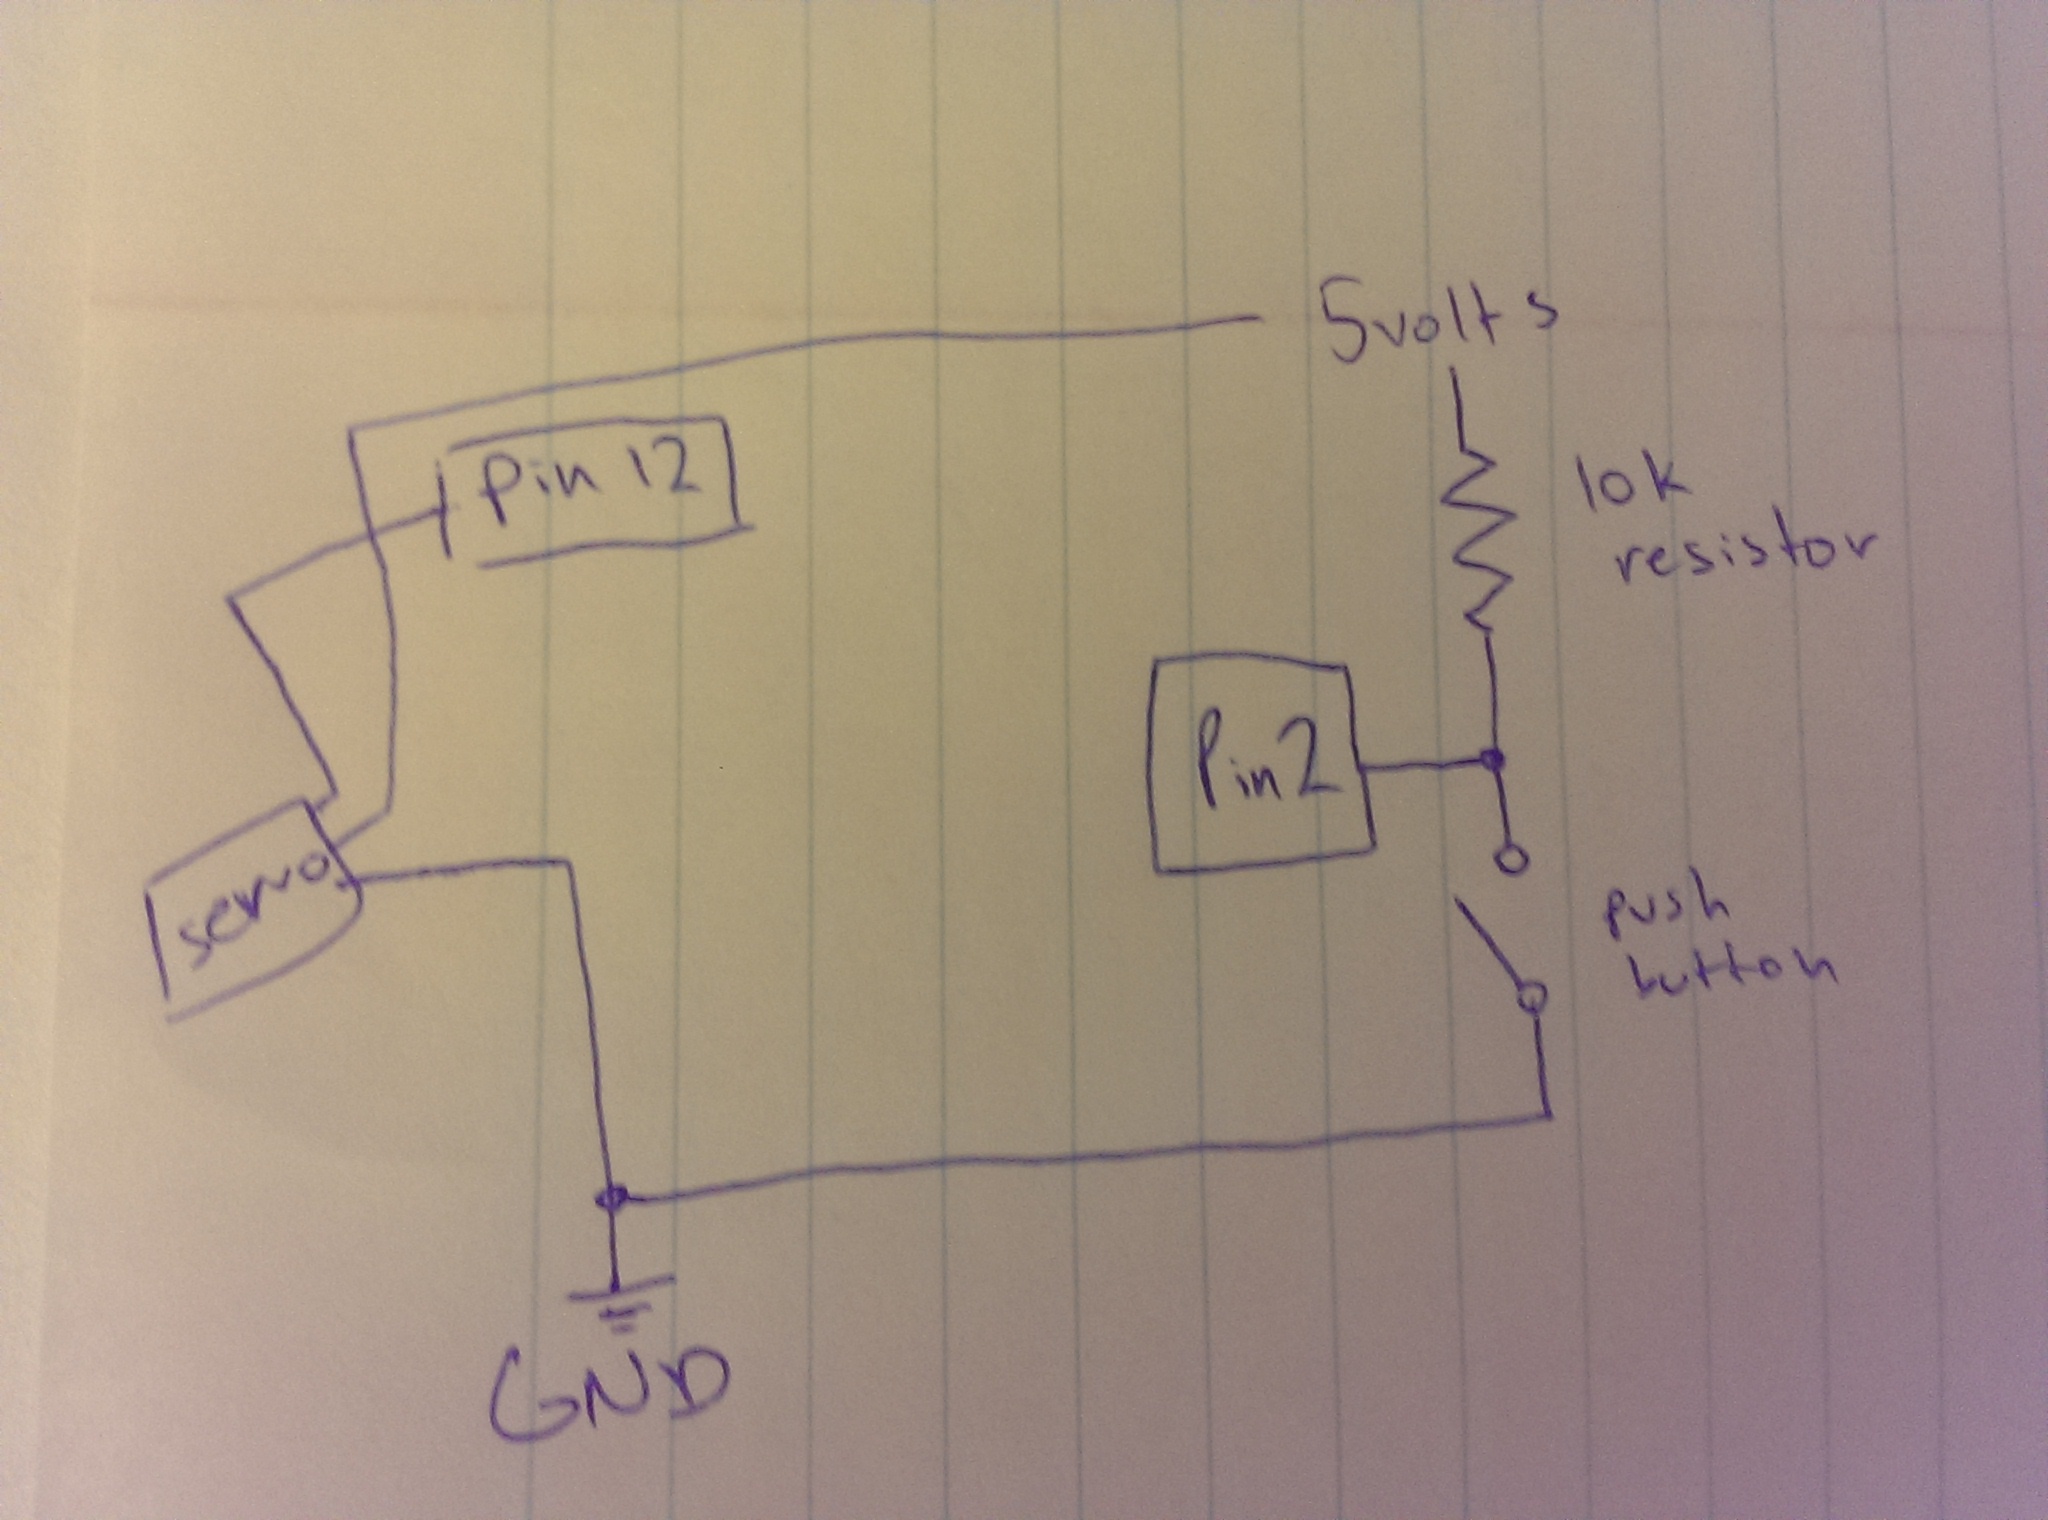 5volts
Pin 12
10k
resistor
Pin 2
servo
push
button
GND